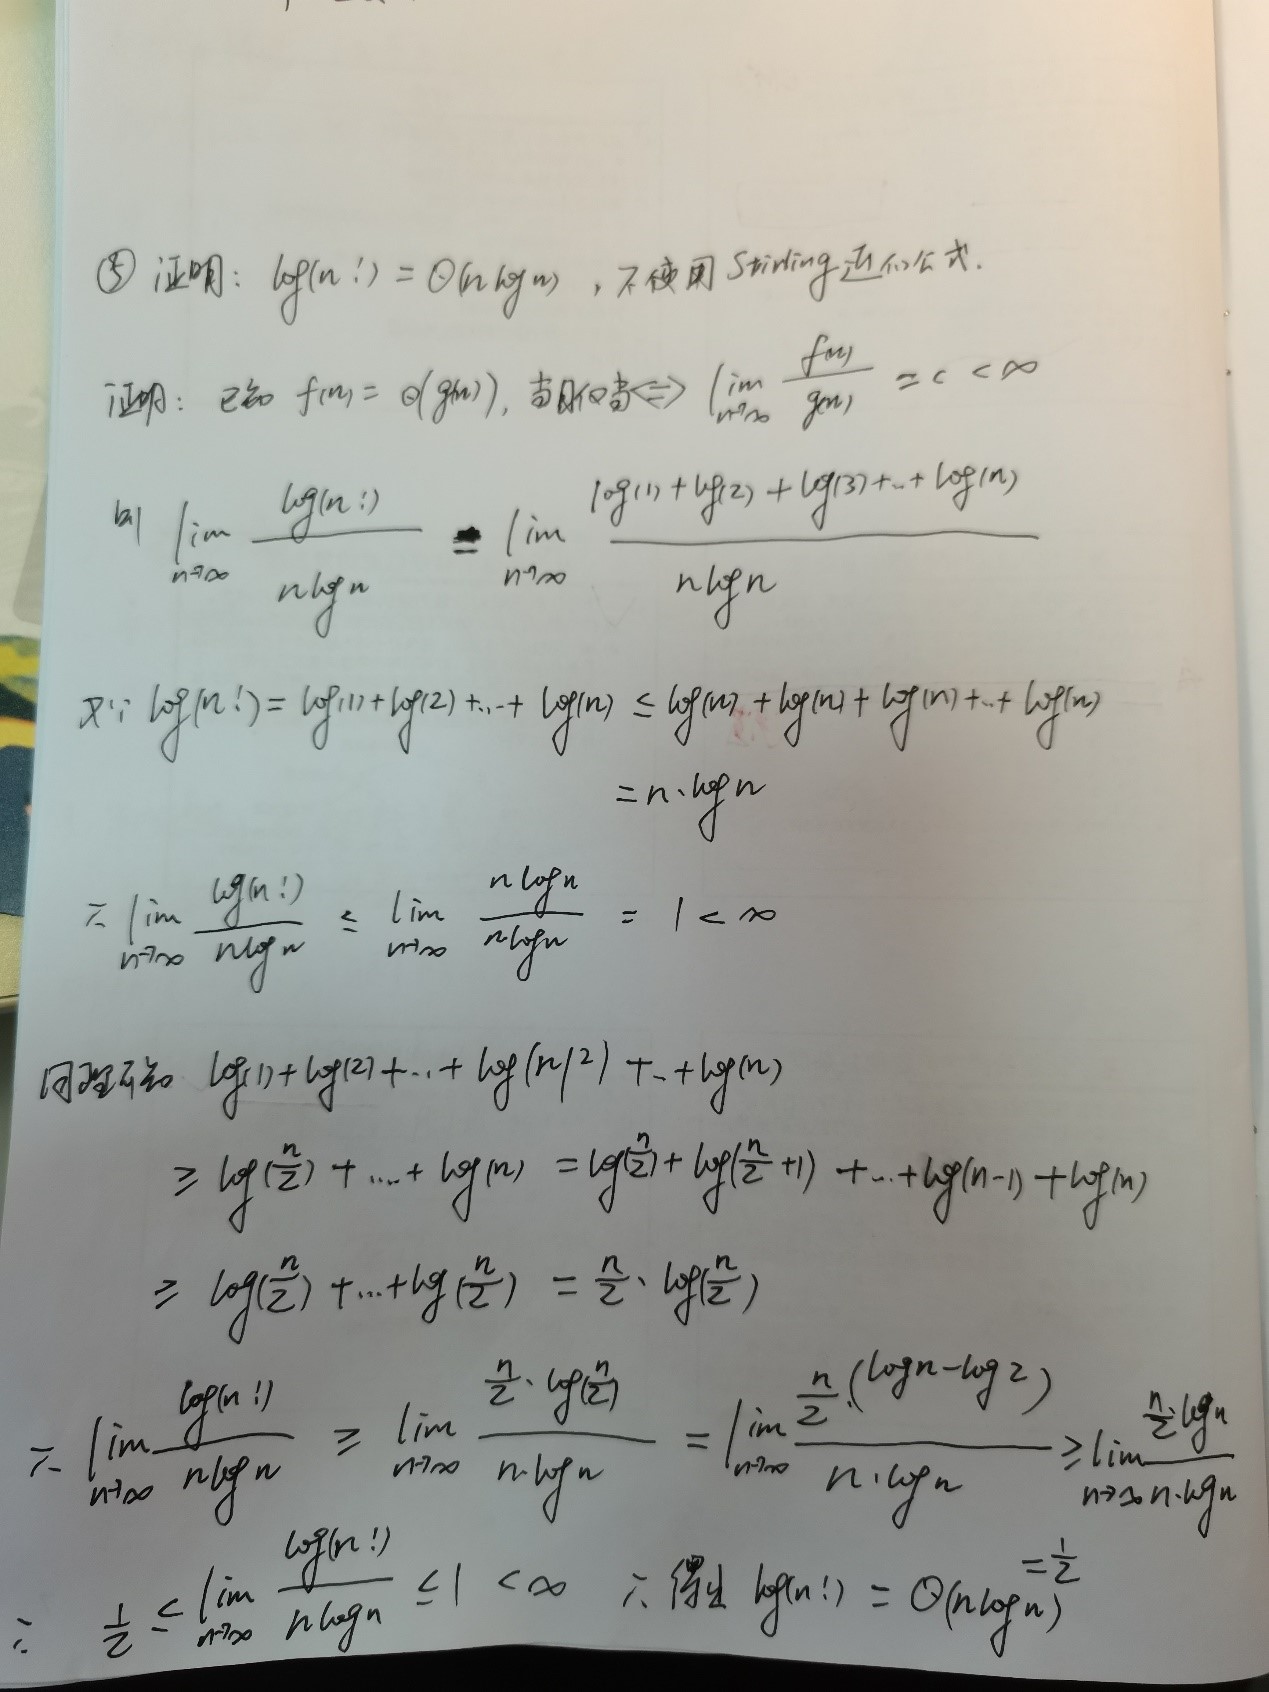 ⑤ 证明: log(n!) = Θ(n log n) , 不使用 Stirling 近似公式.
证明: 已知 f(n) = Θ(g(n)), 当且仅当 <=> lim n→∞ f(n)/g(n) = c < ∞
则 lim n→∞ log(n!)/(n log n) = lim n→∞ (log(1) + log(2) + log(3) + .. + log(n))/(n log n)
又∵ log(n!) = log(1) + log(2) + ... + log(n) ≤ log(n) + log(n) + log(n) + .. + log(n)
= n · log n
∴ lim n→∞ log(n!)/(n log n) ≤ lim n→∞ (n log n)/(n log n) = 1 < ∞
同理可知 log(1) + log(2) + ... + log(n/2) + .. + log(n)
≥ log(n/2) + .... + log(n) = log(n/2) + log(n/2 + 1) + ... + log(n-1) + log(n)
≥ log(n/2) + ... + log(n/2) = n/2 · log(n/2)
∴ lim n→∞ log(n!)/(n log n) ≥ lim n→∞ (n/2 · log(n/2))/(n · log n) = lim n→∞ (n/2 · (log n - log 2))/(n · log n) ≥ lim n→∞ (n/2 · log n)/(n · log n)
= 1/2
∴ 1/2 ≤ lim n→∞ log(n!)/(n log n) ≤ 1 < ∞ ∴ 得出 log(n!) = Θ(n log n)